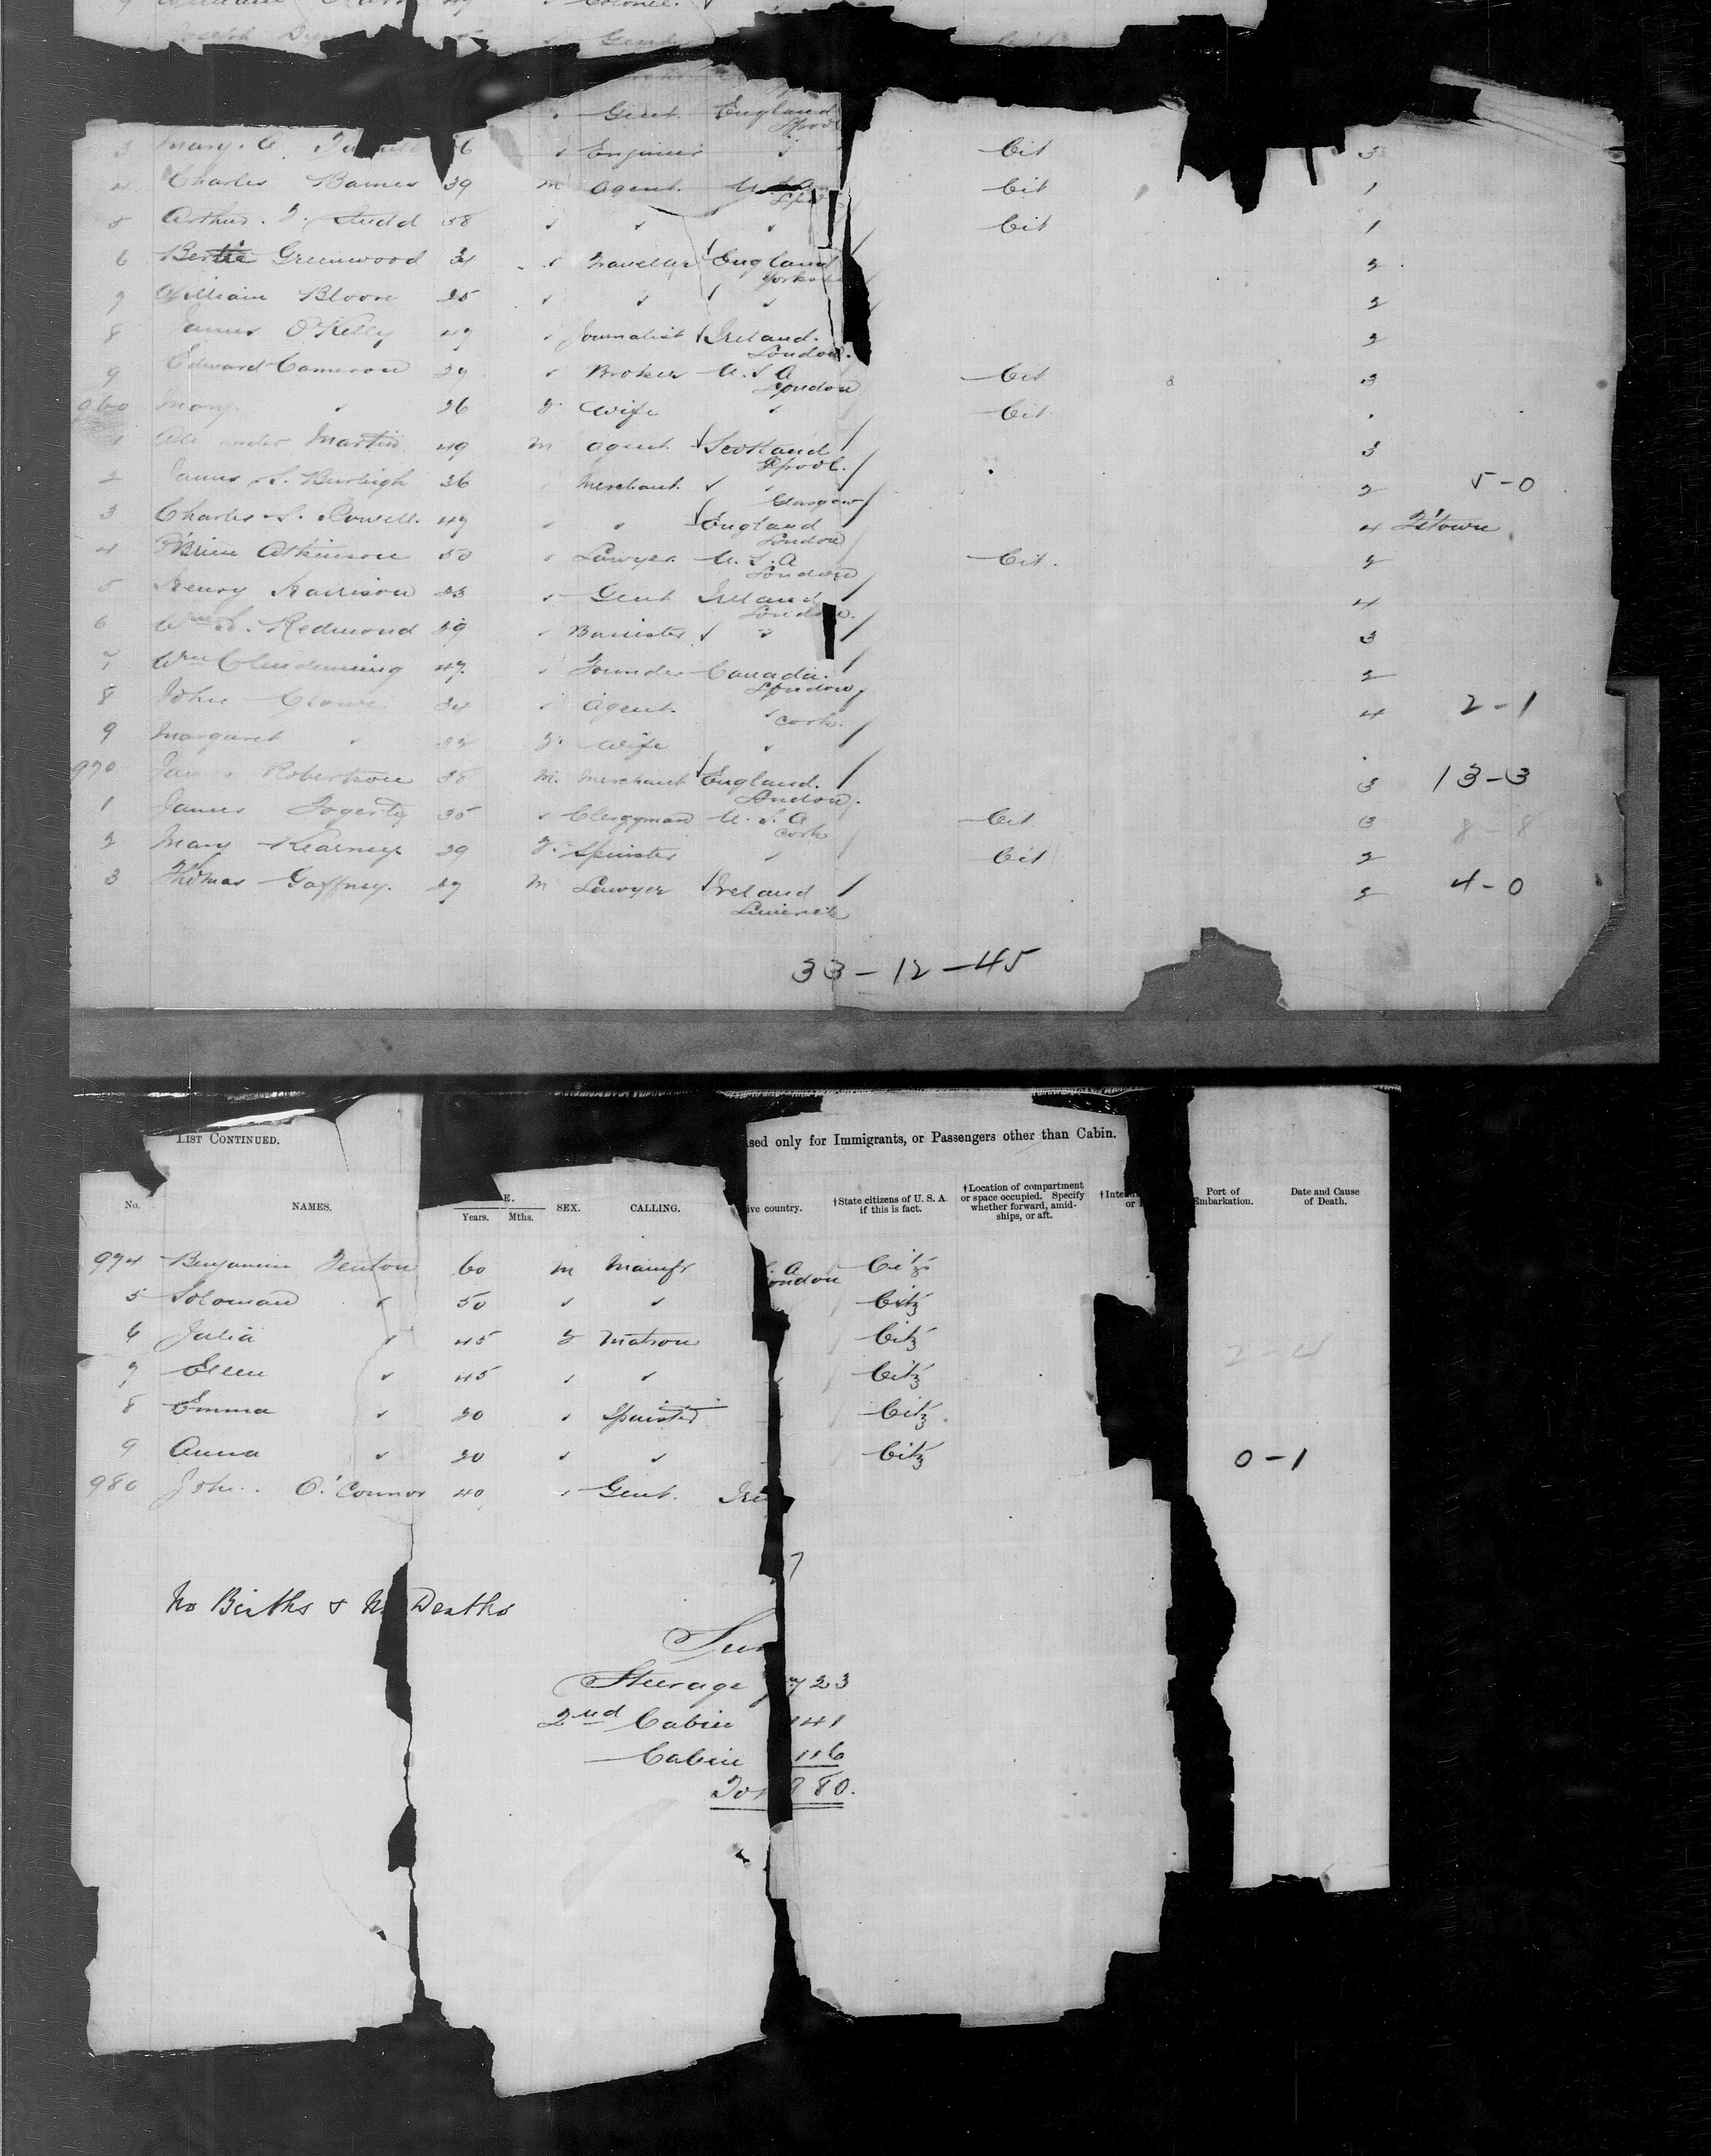 Colonel.
Joseph
Gent. England
L'pool
3 Mary. C. 36 ✓ Engineer ✓ Cit 3
4 Charles Barnes 39 m Agent. U.S.A Cit 1
5 Arthur. F. Studd 38 ✓ ✓ ✓ Cit 1
6 Bertie Greenwood 31 ✓ Traveller England 2
Yorkshire
7 William Bloore 25 ✓ ✓ ✓ 2
8 James O'Kelly 47 ✓ Journalist Ireland. 2
London.
9 Edward Cameron 39 ✓ Broker U.S.A Cit 3
London
960 Mary ✓ 36 F. Wife ✓ Cit
1 Martin 49 m Agent. Scotland 3
L'pool.
2 James S. Burleigh 36 Merchant. ✓ ✓ 2 5-0
Glasgow
3 Charles S. Powell. 47 ✓ ✓ England 4 Q'town
London
4 O'Brien Atkinson 50 ✓ Lawyer U.S.A Cit. 2
London
5 Henry Harrison 23 ✓ Gent Ireland 4
London.
6 Wm. Redmond 29 ✓ Barrister ✓ ✓ 3
7 Wm Clendenning 47. ✓ Founder Canada. 2
London
8 John Crowe 34 ✓ Agent. ✓ 4 2-1
Cork.
9 Margaret ✓ 32 F. Wife ✓
970 James Robertson 38 M. Merchant England. 3 13-3
London.
1 James Fogerty 35 ✓ Clergyman U.S.A Cit 3 8-8
Cork
2 Mary Kearney 29 F. Spinster ✓ Cit 2
3 Thomas Gaffney. 27 M Lawyer Ireland 2 4-0
Limerick
33-12-45
LIST CONTINUED.
used only for Immigrants, or Passengers other than Cabin.
No. NAMES. E. Years. Mths. SEX. CALLING. ive country. †State citizens of U. S. A. if this is fact. †Location of compartment or space occupied. Specify whether forward, amid-ships, or aft. †Inte Port of Embarkation. Date and Cause of Death.
974 Benjamin Fenton 60 m Manufr A Citz
London
5 Soloman ✓ 50 ✓ ✓ Citz
6 Julia ✓ 45 F Matron Citz 2-4
7 Ellen ✓ 45 ✓ ✓ Citz
8 Emma ✓ 20 ✓ Spinster Citz
9 Anna ✓ 20 ✓ ✓ Citz 0-1
980 John. O'Connor 40 ✓ Gent. Ire
No Births & No Deaths
Sum
Steerage 723
2nd Cabin 141
Cabin 116
Tot 980.